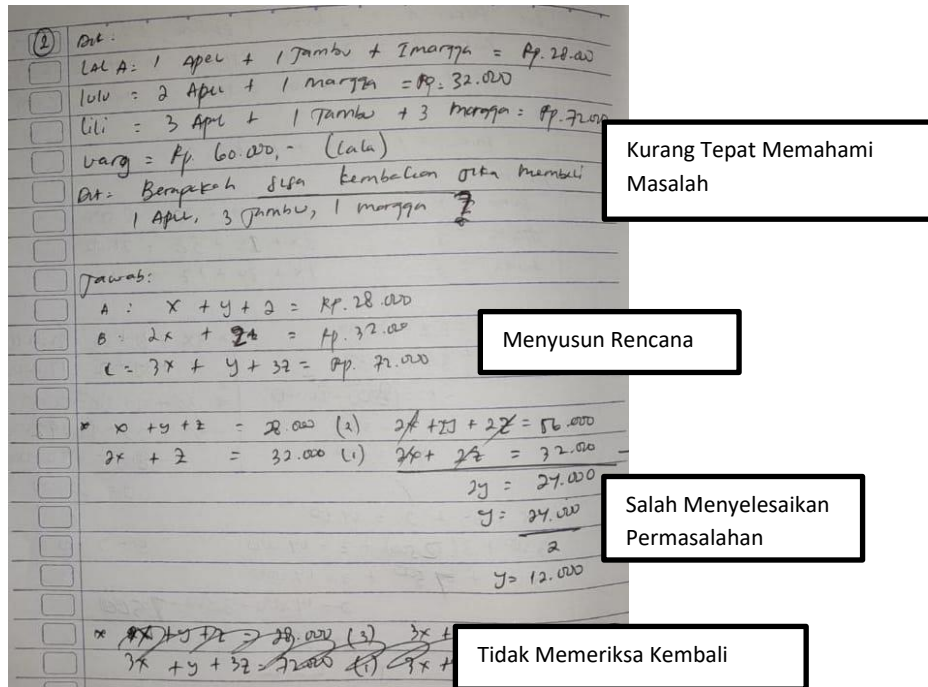 ② Dit :
LALA : 1 Apel + 1 Jambu + 1 mangga = Rp. 28.000
lulu = 2 Apel + 1 mangga = Rp. 32.000
lili = 3 Apel + 1 Jambu + 3 mangga = Rp. 72.000
uang = Rp. 60.000,- (lala)
Dit = Berapakah sisa kembalian jika membeli
1 Apel, 3 Jambu, 1 mangga ?
Kurang Tepat Memahami
Masalah
Jawab:
A : x + y + z = Rp. 28.000
B = 2x + = Rp. 32.000
C = 3x + y + 3z = Rp. 72.000
Menyusun Rencana
* x + y + z = 28.000 (2) 2x + 2y + 2z = 56.000
2x + z = 32.000 (1) 2x + 2z = 32.000 -
2y = 24.000
y = 24.000
2
y = 12.000
Salah Menyelesaikan
Permasalahan
* + y + z = 28.000 (3) 3x +
3x + y + 3z = 72.000 (1) 3x +
Tidak Memeriksa Kembali